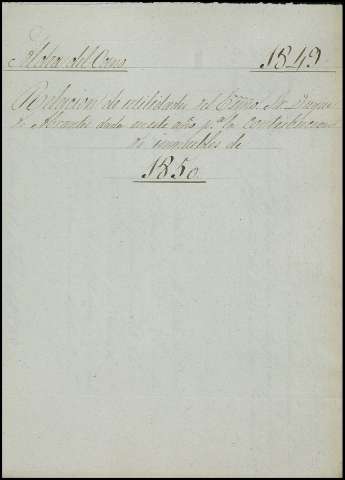 Aldea del Cano 1849
Relacion de utilidades del Exmo. Sr. Duque
de Abrantes dada en este año pª la contribucion
de inmuebles de
1850.